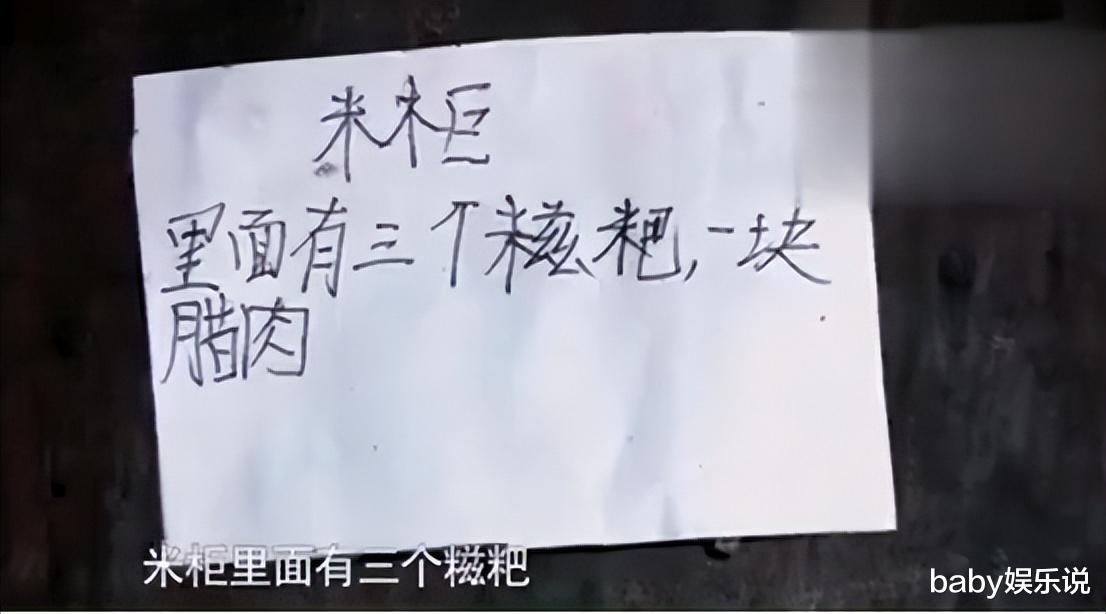 米柜
里面有三个糍粑,一块
腊肉
米柜里面有三个糍粑
baby娱乐说